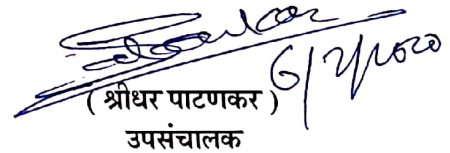 6/2/2020
( श्रीधर पाटणकर )
उपसंचालक